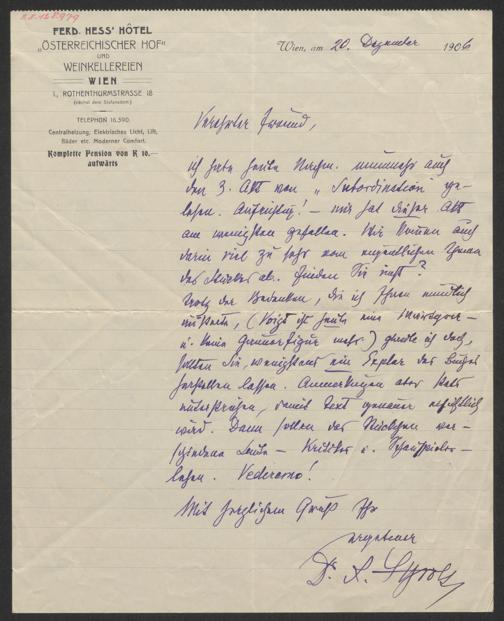 FERD. HESS' HÔTEL
„ÖSTERREICHISCHER HOF"
UND
WEINKELLEREIEN
WIEN
I., ROTHENTHURMSTRASSE 18
(nächst dem Stefansdom)
TELEPHON 16.590.
Centralheizung, Elektrisches Licht, Lift,
Bäder etc. Moderner Comfort.
Komplette Pension von K 10.—
aufwärts
Wien, am 20. Dezember 1906
Verehrter Freund,
ich habe heute Nachm. nunmehr auch
den 3. Akt von „Subordination" ge-
lesen. Aufrichtig! – mir hat dieser Akt
am wenigsten gefallen. Wir kommen auch
darin viel zu sehr vom eigentlichen Thema
des Stückes ab. Finden Sie nicht?
Trotz der Bedenken, die ich Ihnen mündlich
äußerte, (Voigt ist heute eine
u. keine mehr.) glaube ich doch,
sollten Sie, wenigstens ein Explar des Buches
herstellen lassen. Anmerkungen aber stets
unterstrichen, damit Text genauer ersichtlich
wird. Dann sollen das Stückchen ver-
schiedene Leute – Kritiker u. Schauspieler –
lesen. Vederemo!
Mit herzlichem Gruß Ihr
ergebener
Dr.